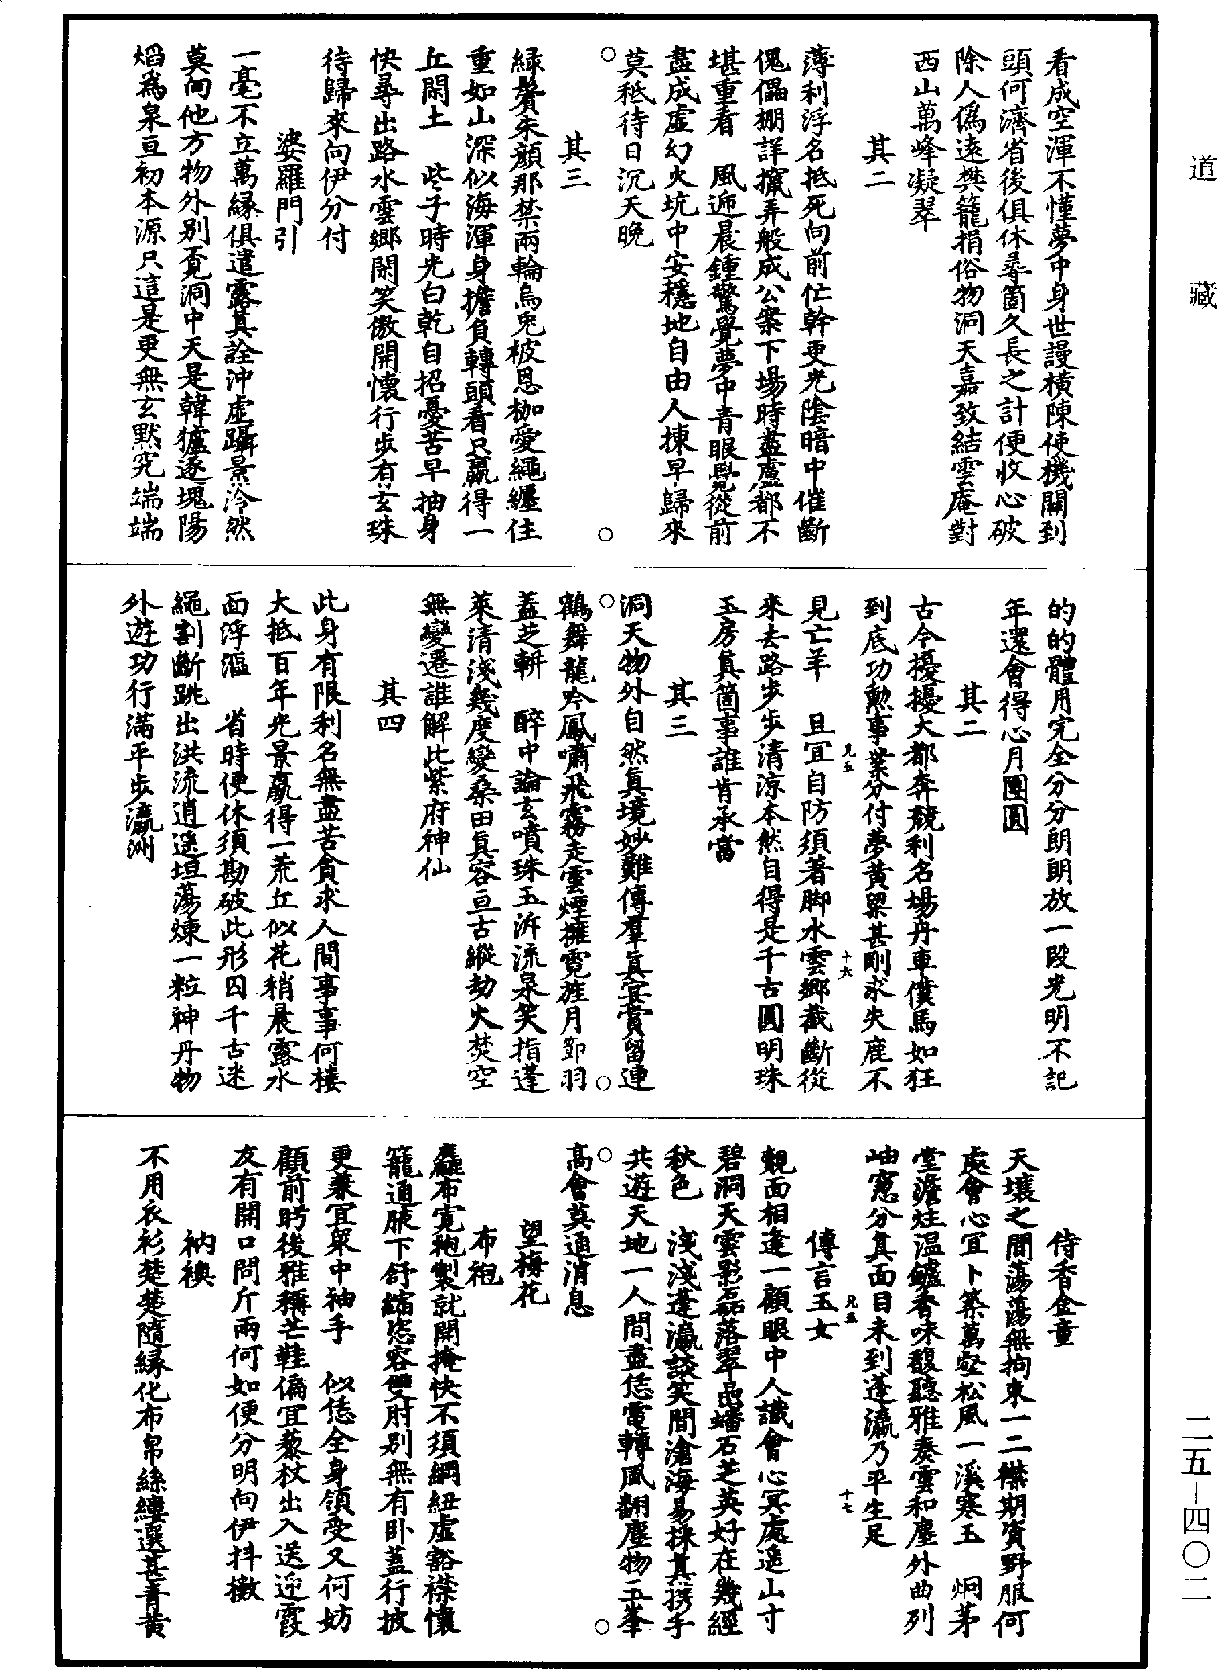 道藏
看成空渾不懂夢中身世謾橫陳使機關到
頭何濟省後俱休尋箇久長之計便收心破
除人僞遠樊籠捐俗物洞天嘉致結雲庵對
西山萬峰凝翠
其二
薄利浮名抵死向前忙幹更光陰暗中催斷
傀儡棚詳攛弄般成公案下場時盡盧都不
堪重看　風迊晨鍾驚覺夢中青眼覷從前
盡成虛幻火坑中安穩地自由人揀早歸來
莫秪待日沉天晚
其三
綠鬢朱顏那禁兩輪烏兎被恩枷愛繩纏住
重如山深似海渾身擔負轉頭看只贏得一
丘閑土　些子時光白乾自招憂苦早抽身
快尋出路水雲鄉閑笑傲開懷行步有玄珠
待歸來向伊分付
婆羅門引
一毫不立萬緣俱遣露真詮沖虛躡景泠然
莫向他方物外別覓洞中天是韓獹逐塊陽
焰爲泉亘初本源只這是更無玄默究端端
的的體用完全分分朗朗放一段光明不記
年還會得心月團圓
其二
古今擾擾大都奔競利名場丹車僕馬如狂
到底功勳事業分付夢黃粱甚剛求失鹿不
見亡羊　且宜自防須著脚水雲鄉截斷從
來去路步步清涼本然自得是千古圓明珠
玉房真箇事誰肯承當
其三
洞天物外自然真境妙難傳羣真宴賞留連
鶴舞龍吟鳳嘯飛霧走雲煙擁霓旌月節羽
蓋芝軿　醉中論玄噴珠玉泝流泉笑指蓬
萊清淺幾度變桑田真容亘古縱劫火焚空
無變遷誰解比紫府神仙
其四
此身有限利名無盡苦貪求人間事事何樓
大抵百年光景贏得一荒丘似花稍晨露水
面浮漚　省時便休須勘破此形囚千古迷
繩割斷跳出洪流逍遥坦蕩煉一粒神丹物
外遊功行滿平步瀛洲
侍香金童
天壤之間蕩蕩無拘束一二襟期賓野服何
處會心宜卜築萬壑松風一溪寒玉　炯茅
堂澹炷温鑪香味馥聽雅奏雲和塵外曲列
岫窻分真面目未到蓬瀛乃平生足
傳言玉女
覿面相逢一顧眼中人識會心冥處遥山寸
碧洞天雲影磊落翠嵒蟠石芝英好在幾經
秋色　淺淺蓬瀛談笑間滄海易採真携手
共遊天地一人間盡恁電轉風翻塵物三峯
高會莫通消息
望梅花
布袍
麤布寬袍製就開掩快不須綱紐虛豁襟懷
籠通腋下舒縮恣容雙肘別無有卧蓋行披
更兼宜衆中袖手　似恁全身領受又何妨
顧前眄後雅稱芒鞋偏宜藜杖出入送迎霞
友有開口問斤兩何如便分明向伊抖擻
衲襖
不用衣衫楚楚隨緣化布帛絲縷選甚青黃
兄五
十六
兄五
十七
二五—四〇二